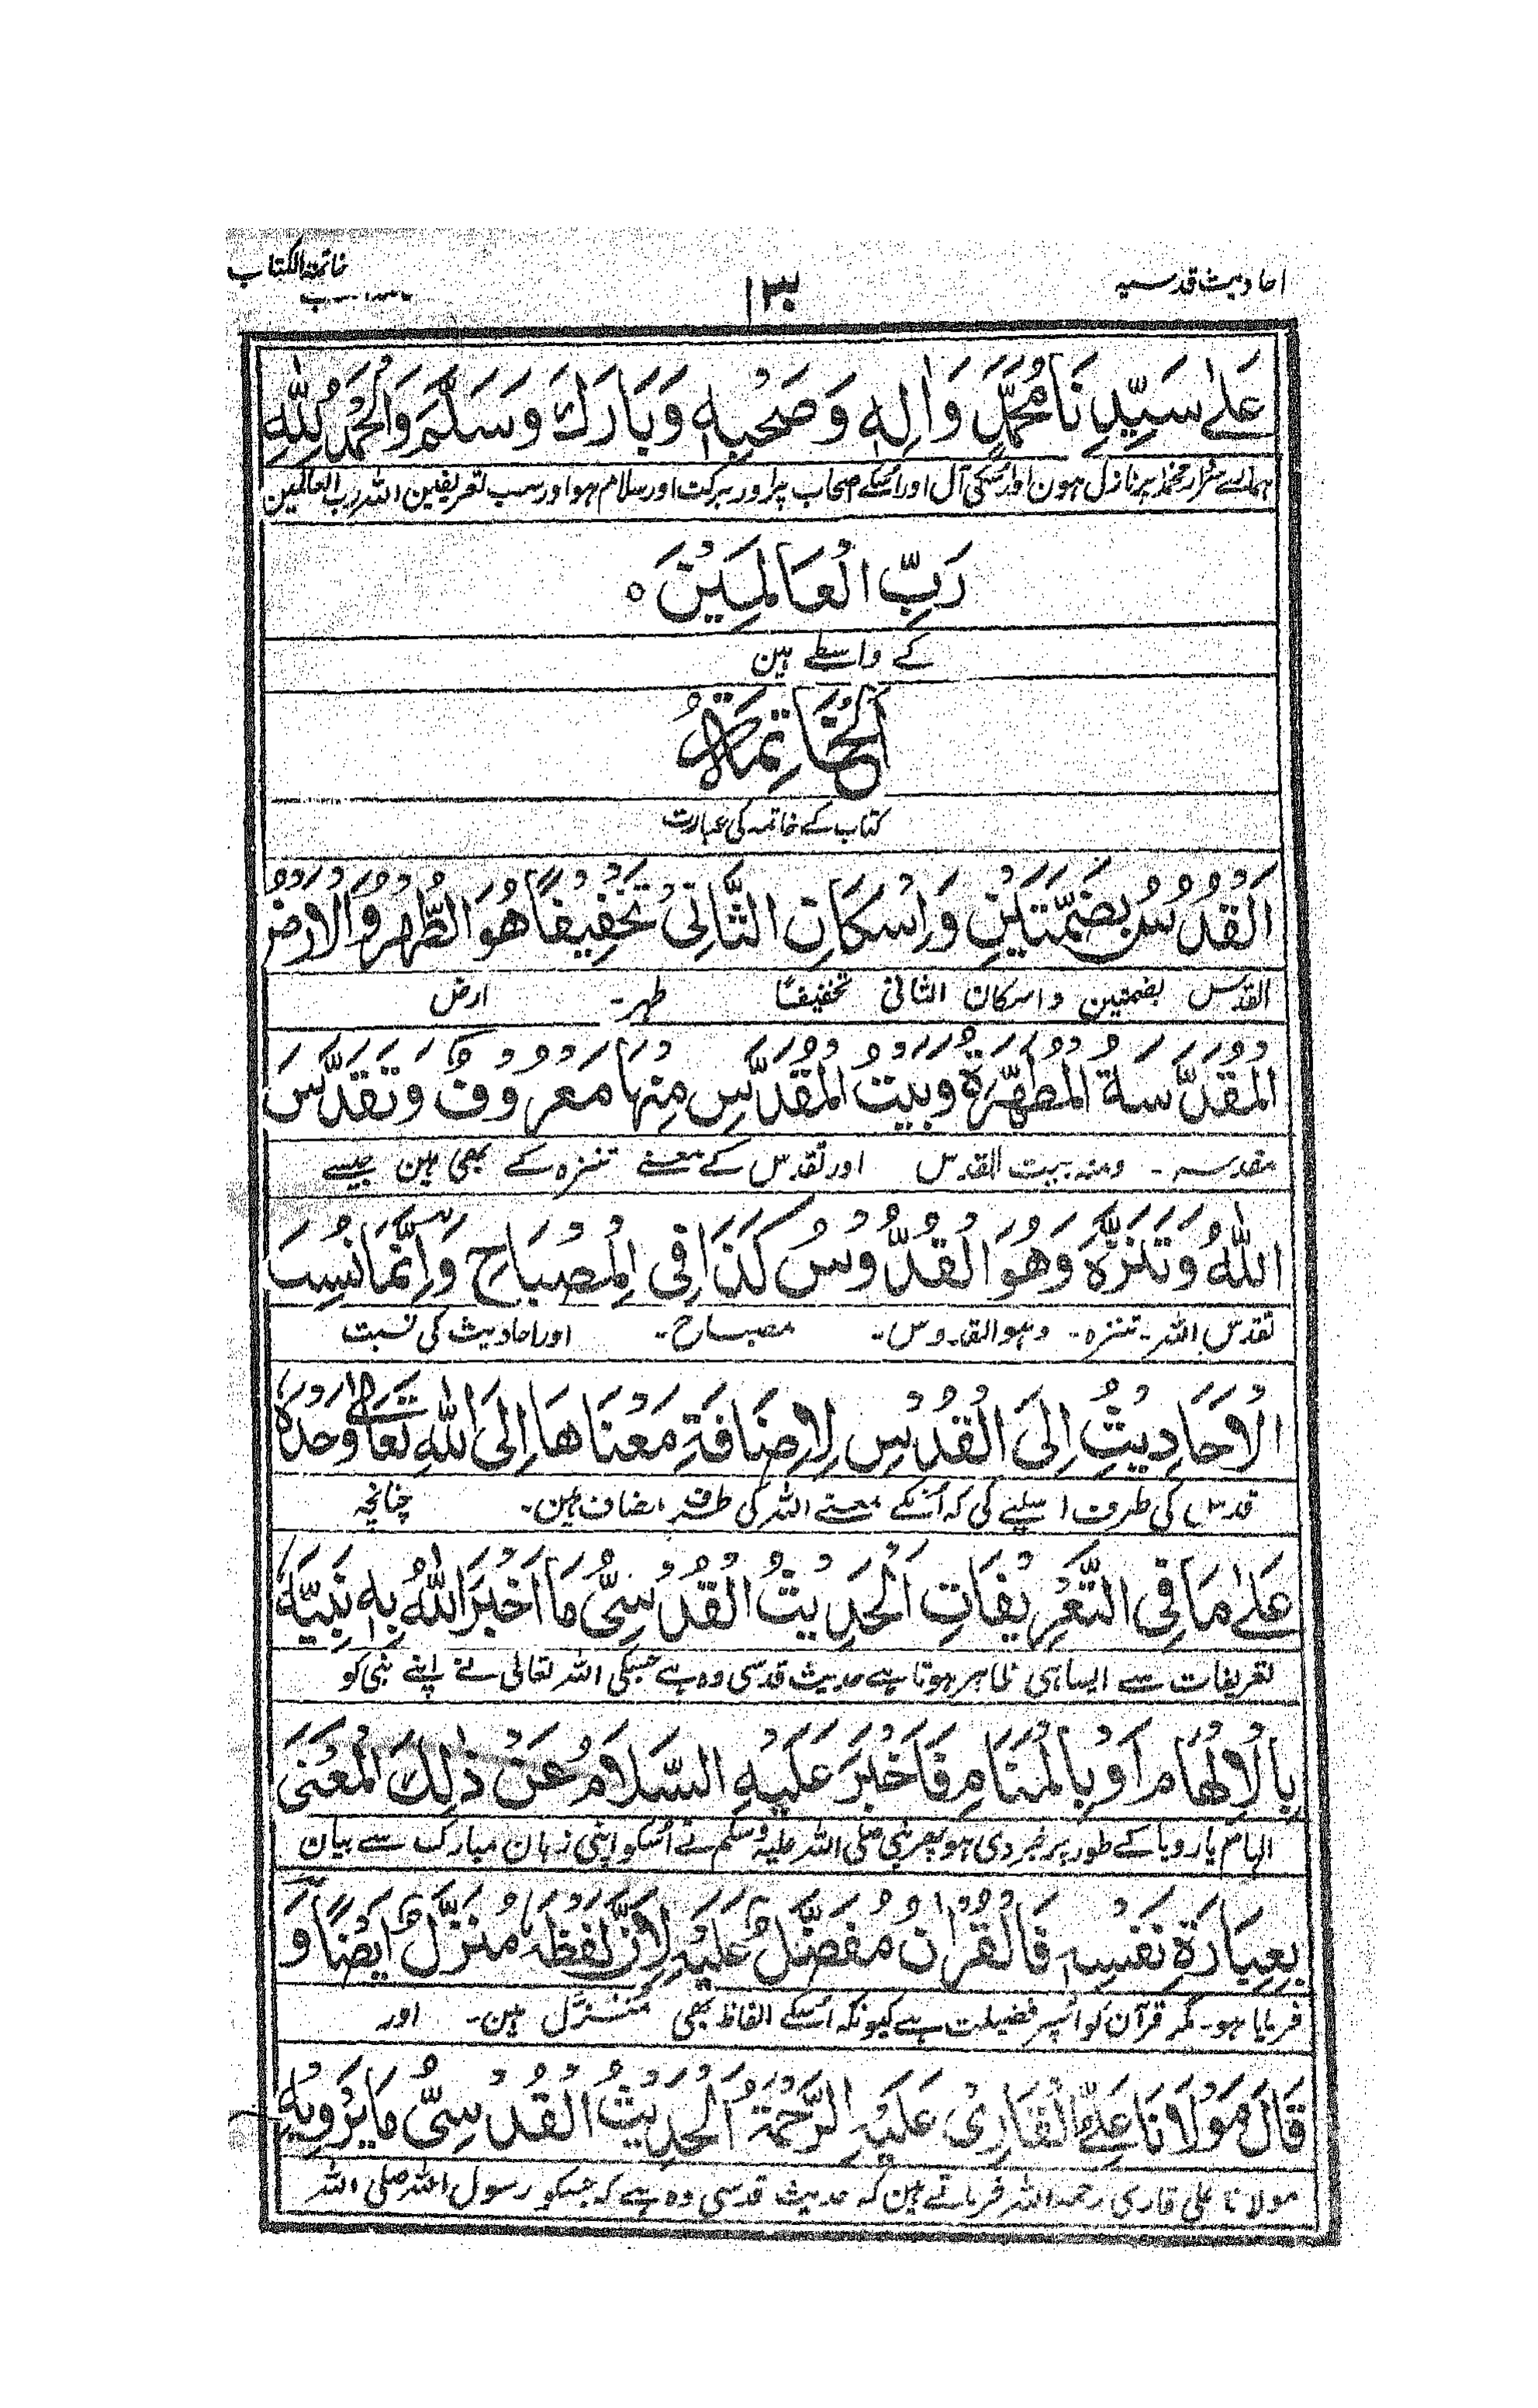 احادیث قدسیہ
۱۳
خاتمۃ الکتاب
عَلٰی سَیِّدِنَا مُحَمَّدٍ وَاٰلِهٖ وَصَحْبِهٖ وَبَارَكَ وَسَلَّمَ وَالْحَمْدُ لِلّٰهِ
ہمارے سردار محمد پر نازل ہون اور اُسکی آل اور اُسکے صحاب پر اور برکت اور سلام ہو اور سب تعریفین اللہ رب العالمین
رَبِّ الْعَالَمِيْنَ ۰
کے واسطے ہین
اَلْخَاتِمَةُ
کتاب کے خاتمہ کی عبارت
اَلْقُدُسُ بِضَمَّتَيْنِ وَاِسْكَانِ الثَّانِیْ تَخْفِيْفًا هُوَ الطُّهْرُ وَالْاَرْضُ
القدس بضمتین و اسکان الثانی تخفیفًا طہر۔ ارض
الْمُقَدَّسَةُ الْمُطَهَّرَةُ وَبَيْتُ الْمُقَدَّسِ مِنْهَا مَعْرُوْفٌ وَتَقَدَّسَ
مقدسہ۔ ومنہ بیت القدس اور تقدس کے معنے تنزہ کے بھی ہین جیسے
اللّٰهُ وَتَنَزَّهَ وَهُوَ الْقُدُّوْسُ كَذَا فِی الْمِصْبَاحِ وَاِنَّمَا نُسِبَ
تقدس اللہ۔ تنزہ۔ وہو القدوس۔ مصباح۔ اور احادیث کی نسبت
الْاَحَادِيْثُ اِلَی الْقُدُسِ لِاِضَافَةِ مَعْنَاهَا اِلَی اللّٰهِ تَعَالٰی وَحْدَهٗ
قدس کی طرف اسلیے کی کہ اُنکے معنے اللہ کی طرف مضاف ہین۔ چنانچہ
عَلٰی مَا فِی التَّعْرِيْفَاتِ اَلْحَدِيْثُ الْقُدُسِیُّ مَا اَخْبَرَ اللّٰهُ بِهٖ نَبِيَّهٗ
تعریفات سے ایسا ہی ظاہر ہوتا ہے حدیث قدسی وہ ہے جسکی اللہ تعالی نے اپنے نبی کو
بِالْاِلْهَامِ اَوْ بِالْمَنَامِ فَاَخْبَرَ عَلَيْهِ السَّلَامُ عَنْ ذٰلِكَ الْمَعْنٰی
الہام یا رویا کے طور پر خبر دی ہو پھر نبی صلی اللہ علیہ وسلم نے اُسکو اپنی زبان مبارک سے بیان
بِعِبَارَةِ نَفْسِهٖ فَالْقُرْاٰنُ مُفَضَّلٌ عَلَيْهِ لِاَنَّ لَفْظَهٗ مُنَزَّلٌ اَيْضًا وَ
فرمایا ہو۔ مگر قرآن کو اُسپر فضیلت ہے کیونکہ اُسکے الفاظ بھی مُنَزَّل ہین۔ اور
قَالَ مَوْلَانَا عَلِیُّ الْقَارِیْ عَلَيْهِ الرَّحْمَةُ اَلْحَدِيْثُ الْقُدُسِیُّ مَا يَرْوِيْهِ
مولانا علی قاری رحمہ اللہ فرماتے ہین کہ حدیث قدسی وہ ہے کہ جسکو رسول اللہ صلی اللہ